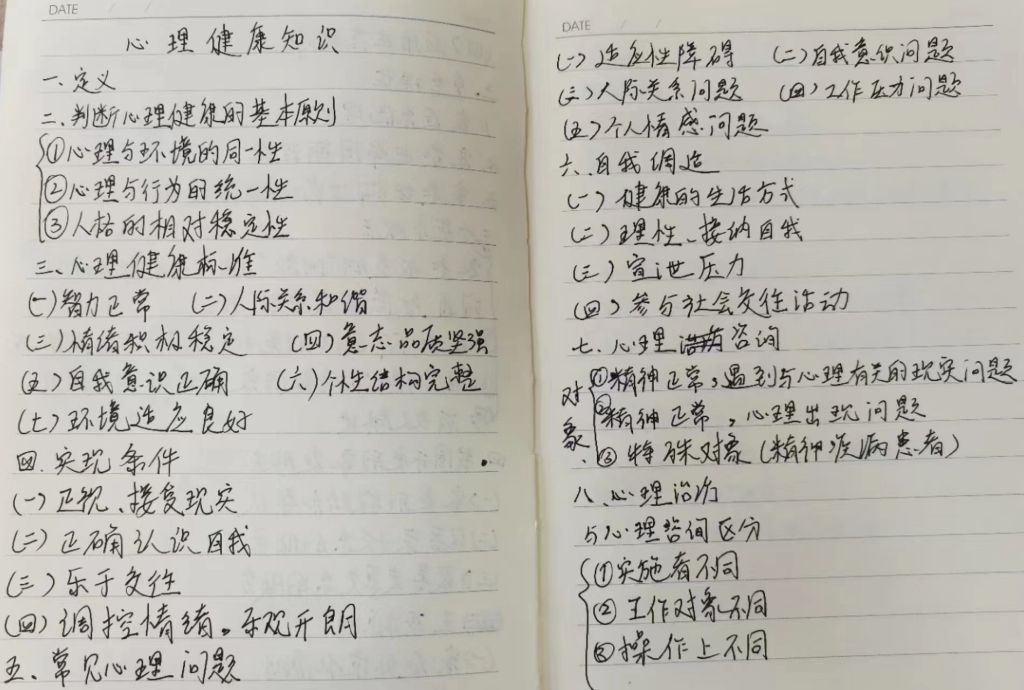 DATE / /
心理健康知识
一、定义
二、判断心理健康的基本原则
①心理与环境的同一性
②心理与行为的统一性
③人格的相对稳定性
三、心理健康标准
(一)智力正常 (二)人际关系和谐
(三)情绪积极稳定 (四)意志品质坚强
(五)自我意识正确 (六)个性结构完整
(七)环境适应良好
四、实现条件
(一)正视、接受现实
(二)正确认识自我
(三)乐于交往
(四)调控情绪。乐观开朗
五、常见心理问题
DATE / /
(一)适应性障碍 (二)自我意识问题
(三)人际关系问题 (四)工作压力问题
(五)个人情感问题
六、自我调适
(一)健康的生活方式
(二)理性、接纳自我
(三)宣泄压力
(四)参与社会交往活动
七、心理咨询
对象
①精神正常,遇到与心理有关的现实问题
②精神正常,心理出现问题
③特殊对象(精神疾病患者)
八、心理治疗
与心理咨询区分
①实施者不同
②工作对象不同
③操作上不同